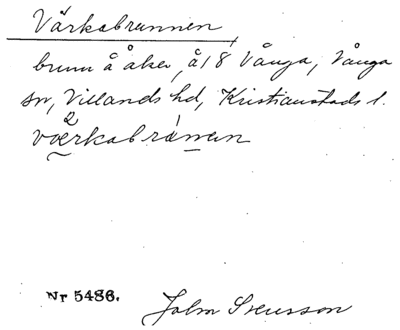 Värkabrunnen
brunn å åker, å 18 Vånga, Vånga
sn, Villands hd, Kristianstads l.
2
værkabrónnen
Nr 5486.
John Svensson